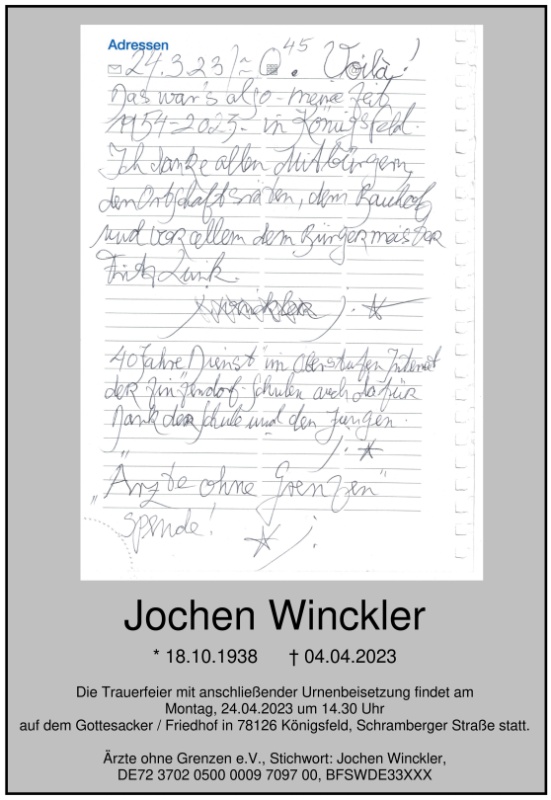 Adressen
24.3.23 45 Voilà!
Das war's also - meine Zeit
1154-2023 - in Königsfeld.
Ich danke allen Mitbürgern,
den Ortschaftsräten, dem Bauhof,
und vor allem dem Bürgermeister
Fritz Link.
Winckler
40 Jahre Dienst im Oberstufen Internat
der Zinzendorf-Schulen auch dafür
Dank der Schule und den Jungen.
"Ärzte ohne Grenzen"
Spende!
Jochen Winckler
* 18.10.1938 † 04.04.2023
Die Trauerfeier mit anschließender Urnenbeisetzung findet am
Montag, 24.04.2023 um 14.30 Uhr
auf dem Gottesacker / Friedhof in 78126 Königsfeld, Schramberger Straße statt.
Ärzte ohne Grenzen e.V., Stichwort: Jochen Winckler,
DE72 3702 0500 0009 7097 00, BFSWDE33XXX